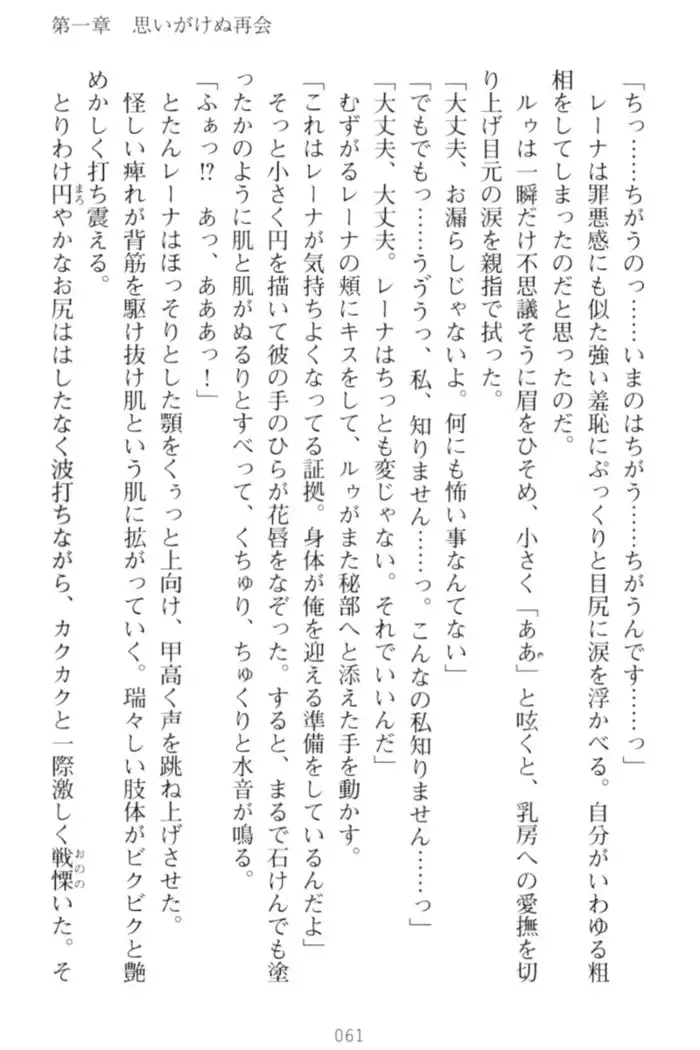 第一章　思いがけぬ再会
「ちっ……ちがうのっ……いまのはちがう……ちがうんです……っ」
レーナは罪悪感にも似た強い羞恥にぷっくりと目尻に涙を浮かべる。自分がいわゆる粗
相をしてしまったのだと思ったのだ。
ルゥは一瞬だけ不思議そうに眉をひそめ、小さく「ああ」と呟くと、乳房への愛撫を切
り上げ目元の涙を親指で拭った。
「大丈夫、お漏らしじゃないよ。何にも怖い事なんてない」
「でもでもっ……うゔうっ、私、知りません……っ。こんなの私知りません……っ」
「大丈夫、大丈夫。レーナはちっとも変じゃない。それでいいんだ」
むずがるレーナの頬にキスをして、ルゥがまた秘部へと添えた手を動かす。
「これはレーナが気持ちよくなってる証拠。身体が俺を迎える準備をしているんだよ」
そっと小さく円を描いて彼の手のひらが花唇をなぞった。すると、まるで石けんでも塗
ったかのように肌と肌がぬるりとすべって、くちゅり、ちゅくりと水音が鳴る。
「ふぁっ!?　あっ、あああっ！」
とたんレーナはほっそりとした顎をくぅっと上向け、甲高く声を跳ね上げさせた。
怪しい痺れが背筋を駆け抜け肌という肌に拡がっていく。瑞々しい肢体がビクビクと艶
めかしく打ち震える。
とりわけ円やかなお尻ははしたなく波打ちながら、カクカクと一際激しく戦慄いた。そ
061